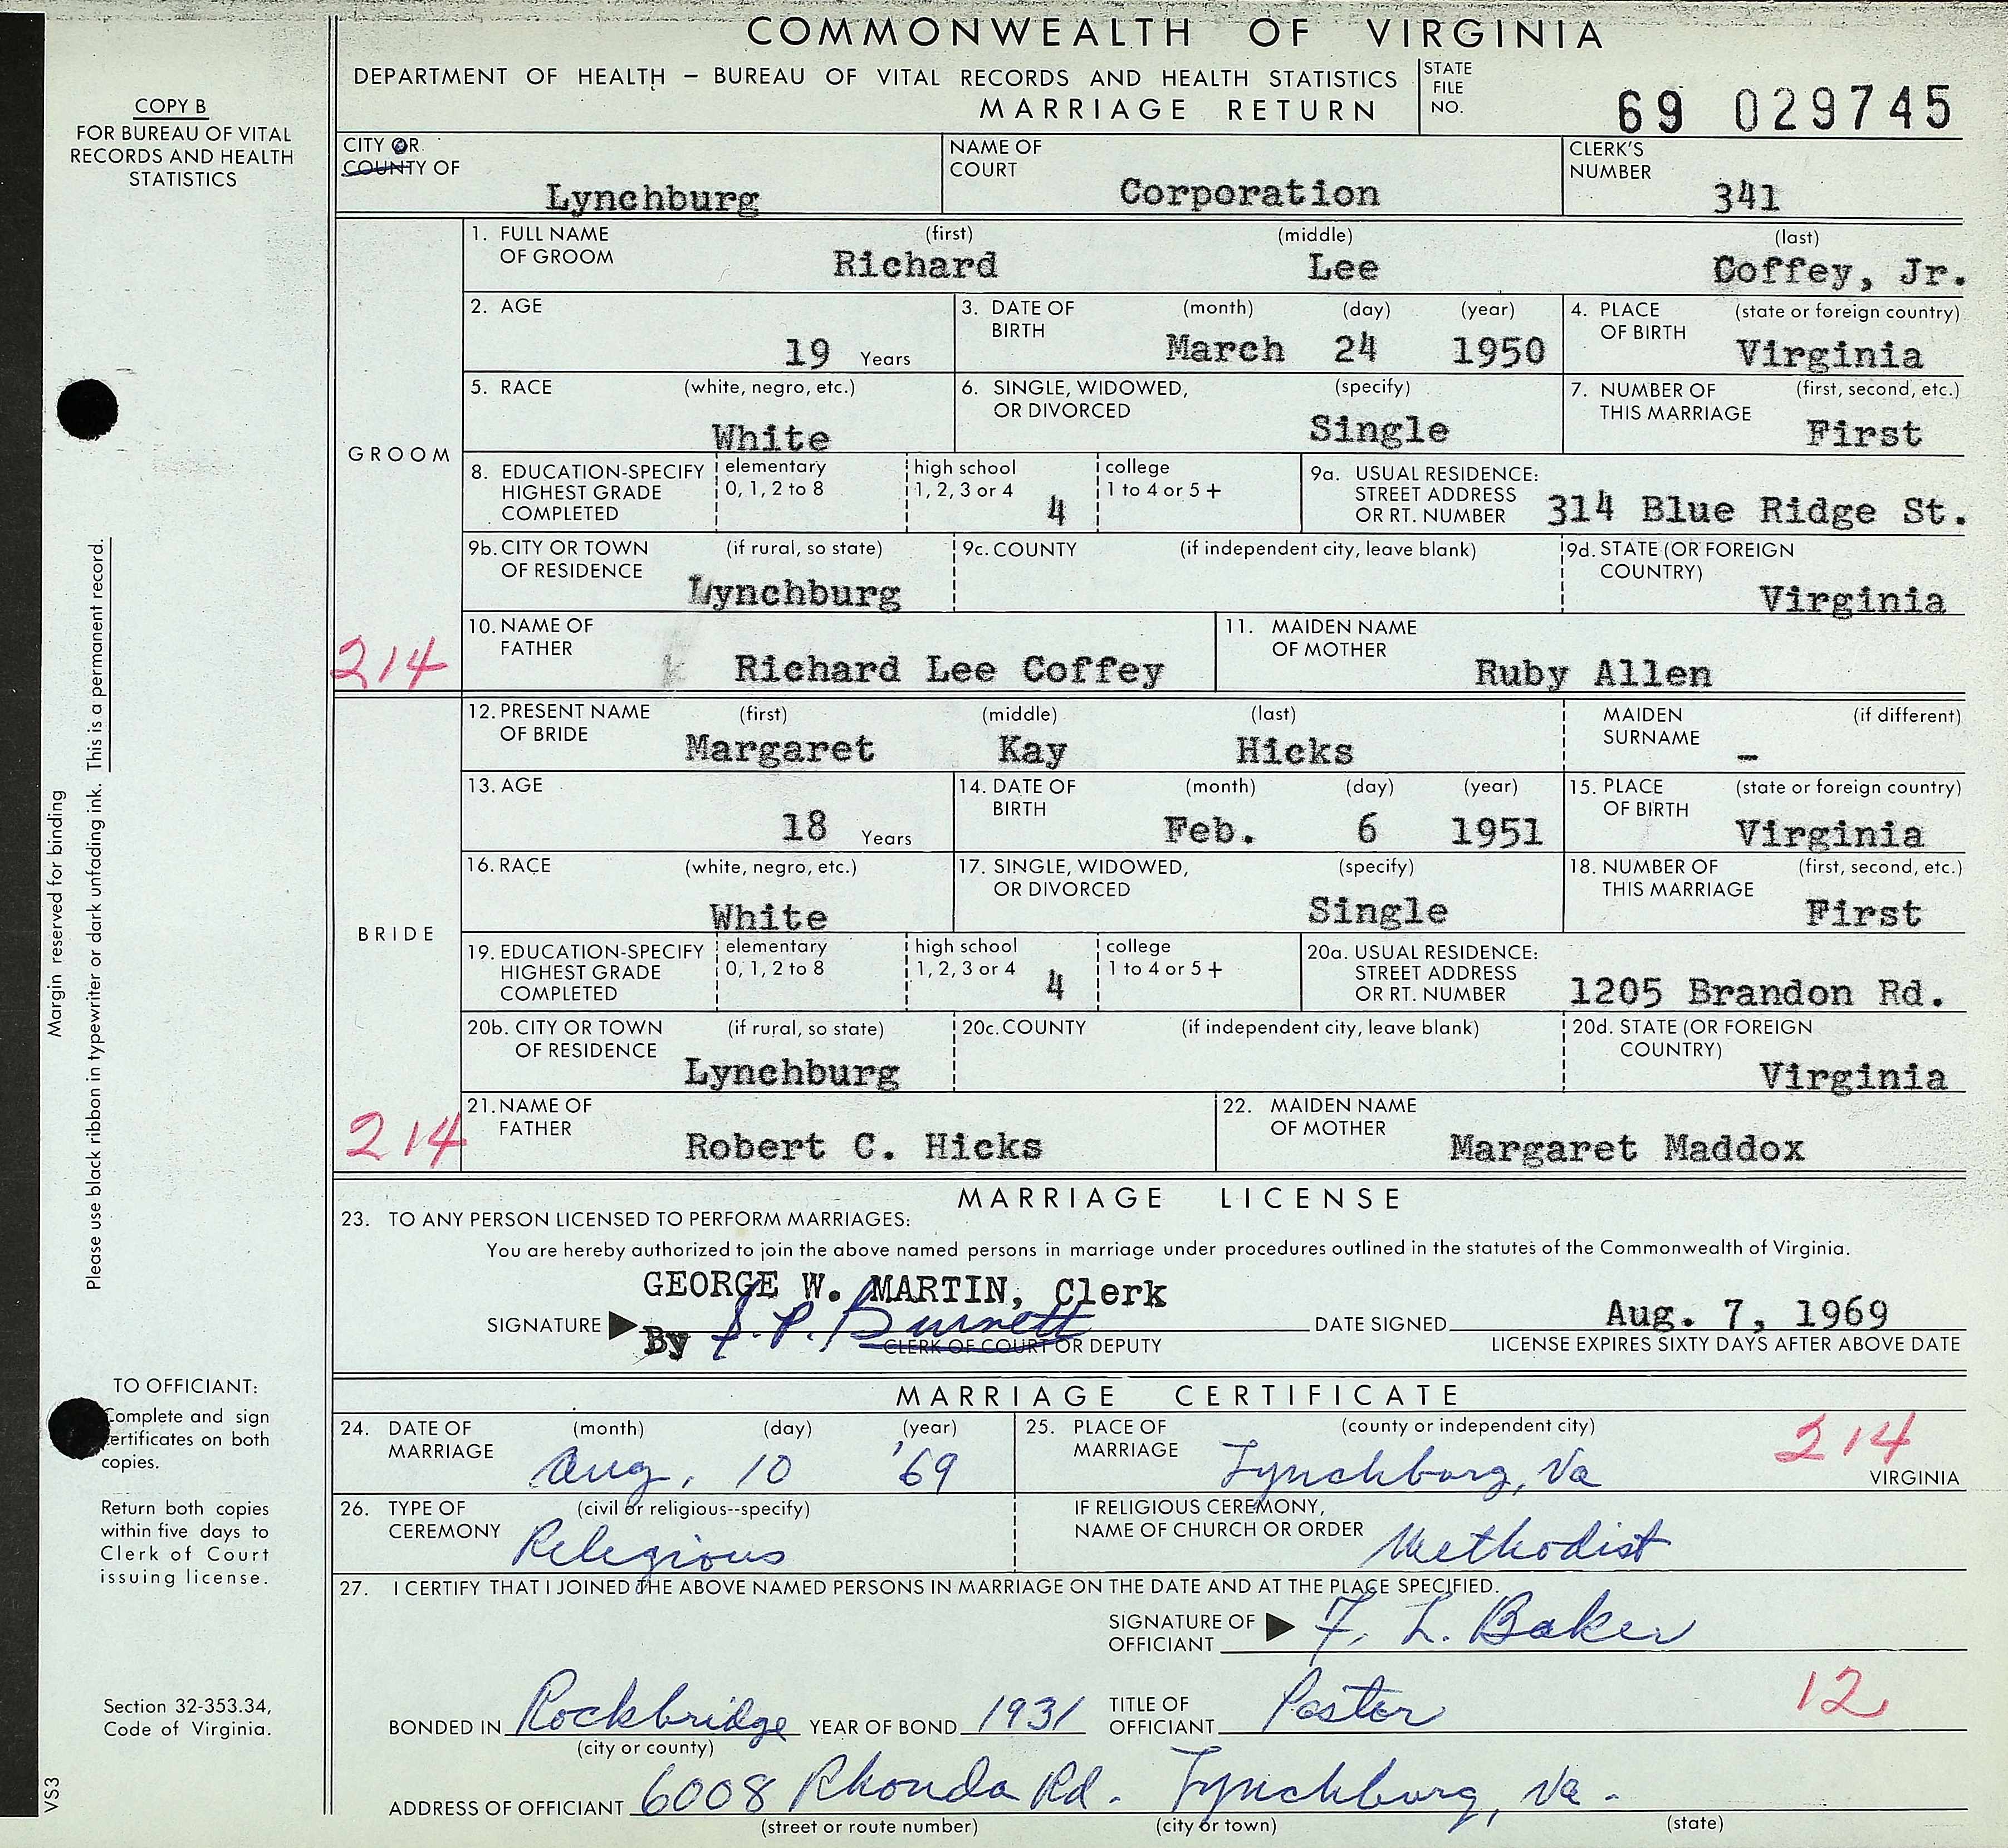 COMMONWEALTH OF VIRGINIA
DEPARTMENT OF HEALTH – BUREAU OF VITAL RECORDS AND HEALTH STATISTICS
MARRIAGE RETURN
STATE FILE NO. 69 029745
COPY B
FOR BUREAU OF VITAL
RECORDS AND HEALTH
STATISTICS
CITY OR COUNTY OF Lynchburg
NAME OF COURT Corporation
CLERK'S NUMBER 341
GROOM
1. FULL NAME OF GROOM (first) Richard (middle) Lee (last) Coffey, Jr.
2. AGE 19 Years
3. DATE OF BIRTH (month) March (day) 24 (year) 1950
4. PLACE OF BIRTH (state or foreign country) Virginia
5. RACE (white, negro, etc.) White
6. SINGLE, WIDOWED, OR DIVORCED (specify) Single
7. NUMBER OF THIS MARRIAGE (first, second, etc.) First
8. EDUCATION-SPECIFY HIGHEST GRADE COMPLETED elementary 0, 1, 2 to 8 high school 1, 2, 3 or 4 4 college 1 to 4 or 5+
9a. USUAL RESIDENCE: STREET ADDRESS OR RT. NUMBER 314 Blue Ridge St.
9b. CITY OR TOWN OF RESIDENCE (if rural, so state) Lynchburg
9c. COUNTY (if independent city, leave blank)
9d. STATE (OR FOREIGN COUNTRY) Virginia
214
10. NAME OF FATHER Richard Lee Coffey
11. MAIDEN NAME OF MOTHER Ruby Allen
BRIDE
12. PRESENT NAME OF BRIDE (first) Margaret (middle) Kay (last) Hicks MAIDEN SURNAME (if different) –
13. AGE 18 Years
14. DATE OF BIRTH (month) Feb. (day) 6 (year) 1951
15. PLACE OF BIRTH (state or foreign country) Virginia
16. RACE (white, negro, etc.) White
17. SINGLE, WIDOWED, OR DIVORCED (specify) Single
18. NUMBER OF THIS MARRIAGE (first, second, etc.) First
19. EDUCATION-SPECIFY HIGHEST GRADE COMPLETED elementary 0, 1, 2 to 8 high school 1, 2, 3 or 4 4 college 1 to 4 or 5+
20a. USUAL RESIDENCE: STREET ADDRESS OR RT. NUMBER 1205 Brandon Rd.
20b. CITY OR TOWN OF RESIDENCE (if rural, so state) Lynchburg
20c. COUNTY (if independent city, leave blank)
20d. STATE (OR FOREIGN COUNTRY) Virginia
214
21. NAME OF FATHER Robert C. Hicks
22. MAIDEN NAME OF MOTHER Margaret Maddox
MARRIAGE LICENSE
23. TO ANY PERSON LICENSED TO PERFORM MARRIAGES:
You are hereby authorized to join the above named persons in marriage under procedures outlined in the statutes of the Commonwealth of Virginia.
GEORGE W. MARTIN, Clerk
SIGNATURE By S. P. Burnett DATE SIGNED Aug. 7, 1969
CLERK OF COURT OR DEPUTY LICENSE EXPIRES SIXTY DAYS AFTER ABOVE DATE
MARRIAGE CERTIFICATE
24. DATE OF MARRIAGE (month) Aug, (day) 10 (year) '69
25. PLACE OF MARRIAGE (county or independent city) Lynchburg, Va 214 VIRGINIA
26. TYPE OF CEREMONY (civil or religious--specify) Relegious
IF RELIGIOUS CEREMONY, NAME OF CHURCH OR ORDER Methodist
27. I CERTIFY THAT I JOINED THE ABOVE NAMED PERSONS IN MARRIAGE ON THE DATE AND AT THE PLACE SPECIFIED.
SIGNATURE OF OFFICIANT F. L. Baker
BONDED IN Rockbridge (city or county) YEAR OF BOND 1931 TITLE OF OFFICIANT Pastor 12
ADDRESS OF OFFICIANT 6008 Rhonda Rd. Lynchburg, Va.
(street or route number) (city or town) (state)
Margin reserved for binding
Please use black ribbon in typewriter or dark unfading ink. This is a permanent record.
TO OFFICIANT:
Complete and sign
certificates on both
copies.
Return both copies
within five days to
Clerk of Court
issuing license.
Section 32-353.34,
Code of Virginia.
VS3